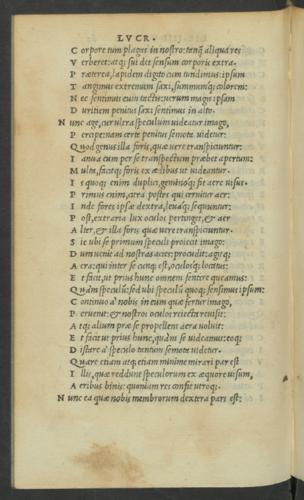 LVCR.
C orpore tum plagas in nostro: tenq̃ aliqua res
V erberet: atq; sui det sensum corporis extra.
P ræterea, lapidem digito cum tundimus: ipsum
T angimus extremum saxi, summumq; colorem:
N ec sentimus eum tactu: uerum magis ipsam
D uritiem penitus saxi sentimus in alto.
N unc age, cur ultra speculum uideatur imago,
P ercipe: nam certe penitus semota uidetur.
Q uod genus illa foris, quæ uere transpiciuntur.
I anua cum per se transpectum præbet apertum:
M ulta, facitq; foris ex ædibus ut uideantur.
I s quoq; enim duplici, geminoq; fit aere uisus.
P rimus enim, citra postes qui cernitur aer:
I nde fores ipsæ dextra, leuaq; sequuntur.
P ost, extraria lux oculos pertinget, & aer
A lter, & illa foris quæ uere transpiciuntur.
S ic ubi se primum speculi proiecit imago:
D um uenit ad nostras acies: procudit: agitq;
A era: qui inter se cunq; est, oculosq; locatus:
E t facit, ut prius hunc omnem sentire queamus:
Q uam speculũ: sed ubi speculũ quoq; sensimus: ipsum:
C ontinuo a' nobis in eum quæ fertur imago,
P eruenit: & nostros oculos reiecta reuisit:
A tq; alium præ se propellens aera uoluit:
E t facit ut prius hunc, quàm se uideamus: eoq;
D istare a' speculo tantum semota uidetur.
Q uare etiam atq; etiam minime mirari par est
I llis, quæ reddunt speculorum ex æquore uisum,
A eribus binis: quoniam res confit utroq;.
N unc ea quæ nobis membrorum dextera pars est: